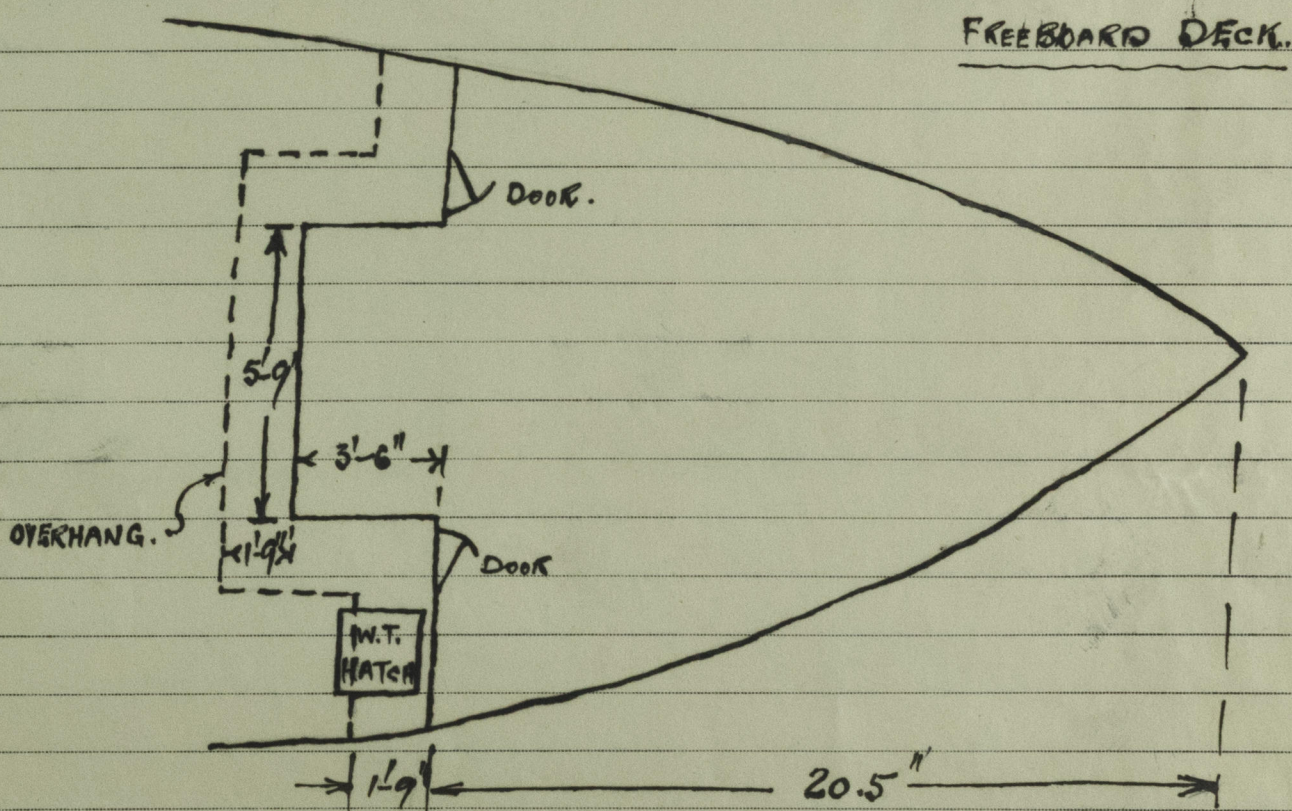 FREEBOARD DECK.
DOOR.
5'-9"
3'-6"
OVERHANG.
1'-9"
DOOR
W.T.
HATCH
1'-9"
20.5"